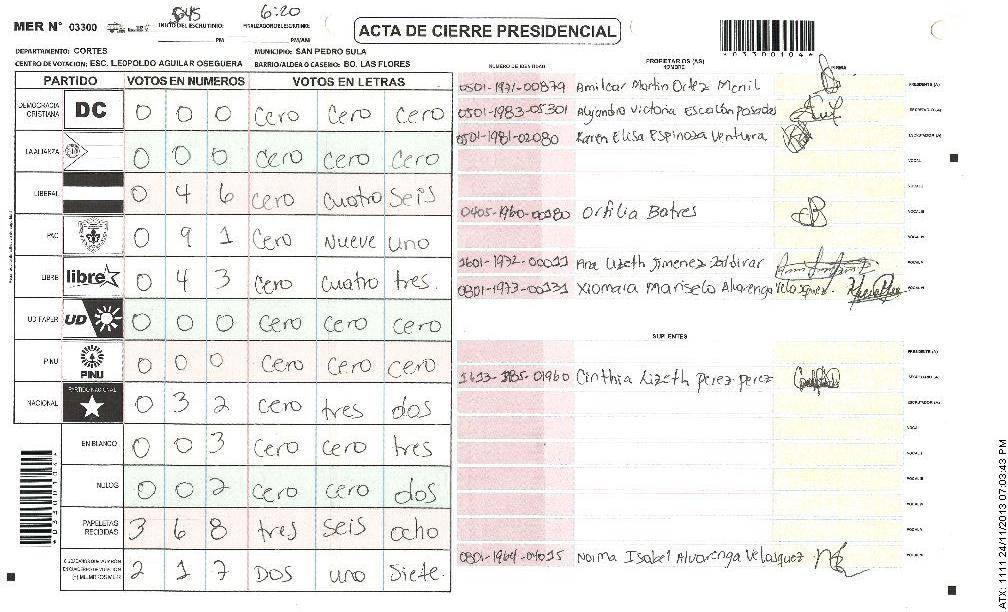 845
6:20
MER N° 03300
INICIO DEL ESCRUTINIO:
FINALIZACION DEL ESCRUTINIO:
PM
PM/AM
ACTA DE CIERRE PRESIDENCIAL
DEPARTAMENTO: CORTES
MUNICIPIO: SAN PEDRO SULA
CENTRO DE VOTACION: ESC. LEOPOLDO AGUILAR OSEGUERA
BARRIO/ALDEA O CASERIO: BO. LAS FLORES
PARTIDO VOTOS EN NUMEROS VOTOS EN LETRAS
DEMOCRACIA CRISTIANA DC 0 0 0 Cero Cero Cero
LA ALIANZA 0 0 0 Cero Cero Cero
LIBERAL 0 4 6 Cero Cuatro Seis
PAC 0 9 1 Cero Nueve uno
LIBRE libre 0 4 3 Cero Cuatro tres.
UD FAPER UD 0 0 0 Cero Cero Cero
PINU PINU 0 0 0 Cero Cero Cero
NACIONAL PARTIDO NACIONAL 0 3 2 Cero tres dos
EN BLANCO 0 0 3 Cero Cero tres
NULOS 0 0 2 Cero Cero dos
PAPELETAS RECIBIDAS 3 6 8 tres seis ocho
2 1 7 DOS uno Siete.
NUMERO DE IDENTIDAD
PROPIETARIOS (AS)
NOMBRE
FIRMA
0501-1971-00879 Amilcar Martin Ortez Menil PRESIDENTE (A)
0501-1983-05301 Alejandra Victoria Escalon Posadas SECRETARIO (A)
0501-1981-02080 Karen Elisa Espinoza Ventura ESCRUTADOR (A)
VOCAL I
VOCAL II
0405-1960-00180 Orfilia Batres VOCAL III
VOCAL IV
1601-1972-00011 Ana Lizeth Jimenez Zaldivar VOCAL V
0801-1973-00131 Xiomara Marisela Alvarenga Velasquez. VOCAL VI
SUPLENTES
PRESIDENTE (A)
1613-1985-01960 Cinthia Lizeth perez perez SECRETARIO (A)
ESCRUTADOR (A)
VOCAL I
VOCAL II
VOCAL III
VOCAL IV
VOCAL V
0801-1964-04015 Norma Isabel Alvarenga Velasquez VOCAL VI
*03300104*
ATX: 1111 24/11/2013 07:03:43 PM